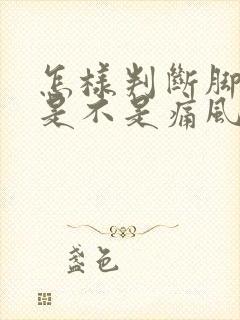 怎樣判斷脚
是不是痛風
盞色